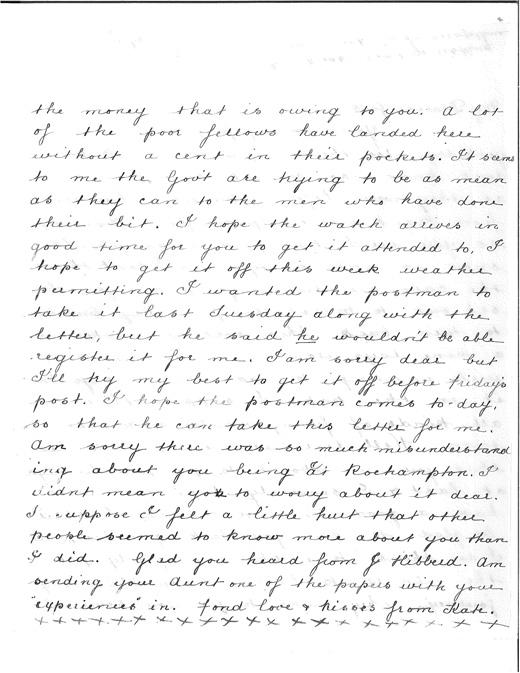 the money that is owing to you. A lot
of the poor fellows have landed here
without a cent in their pockets. It seems
to me the Gov't are trying to be as mean
as they can to the men who have done
their bit. I hope the watch arrives in
good time for you to get it attended to, I
hope to get it off this week weather
permitting. I wanted the postman to
take it last Tuesday along with the
letter, but he said he wouldn't be able
register it for me. I am sorry dear but
I'll try my best to get it off before Friday's
post. I hope the postman comes to-day,
so that he can take this letter for me.
Am sorry there was so much misunderstand
ing about you being at Roehampton. I
didnt mean you to worry about it dear.
I suppose I felt a little hurt that other
people seemed to know more about you than
I did. Glad you heard from J Hibberd. Am
sending your Aunt one of the papers with your
"experiences" in. Fond love & kisses from Kate.
x x x x x x x x x x x x x x x x x x x x